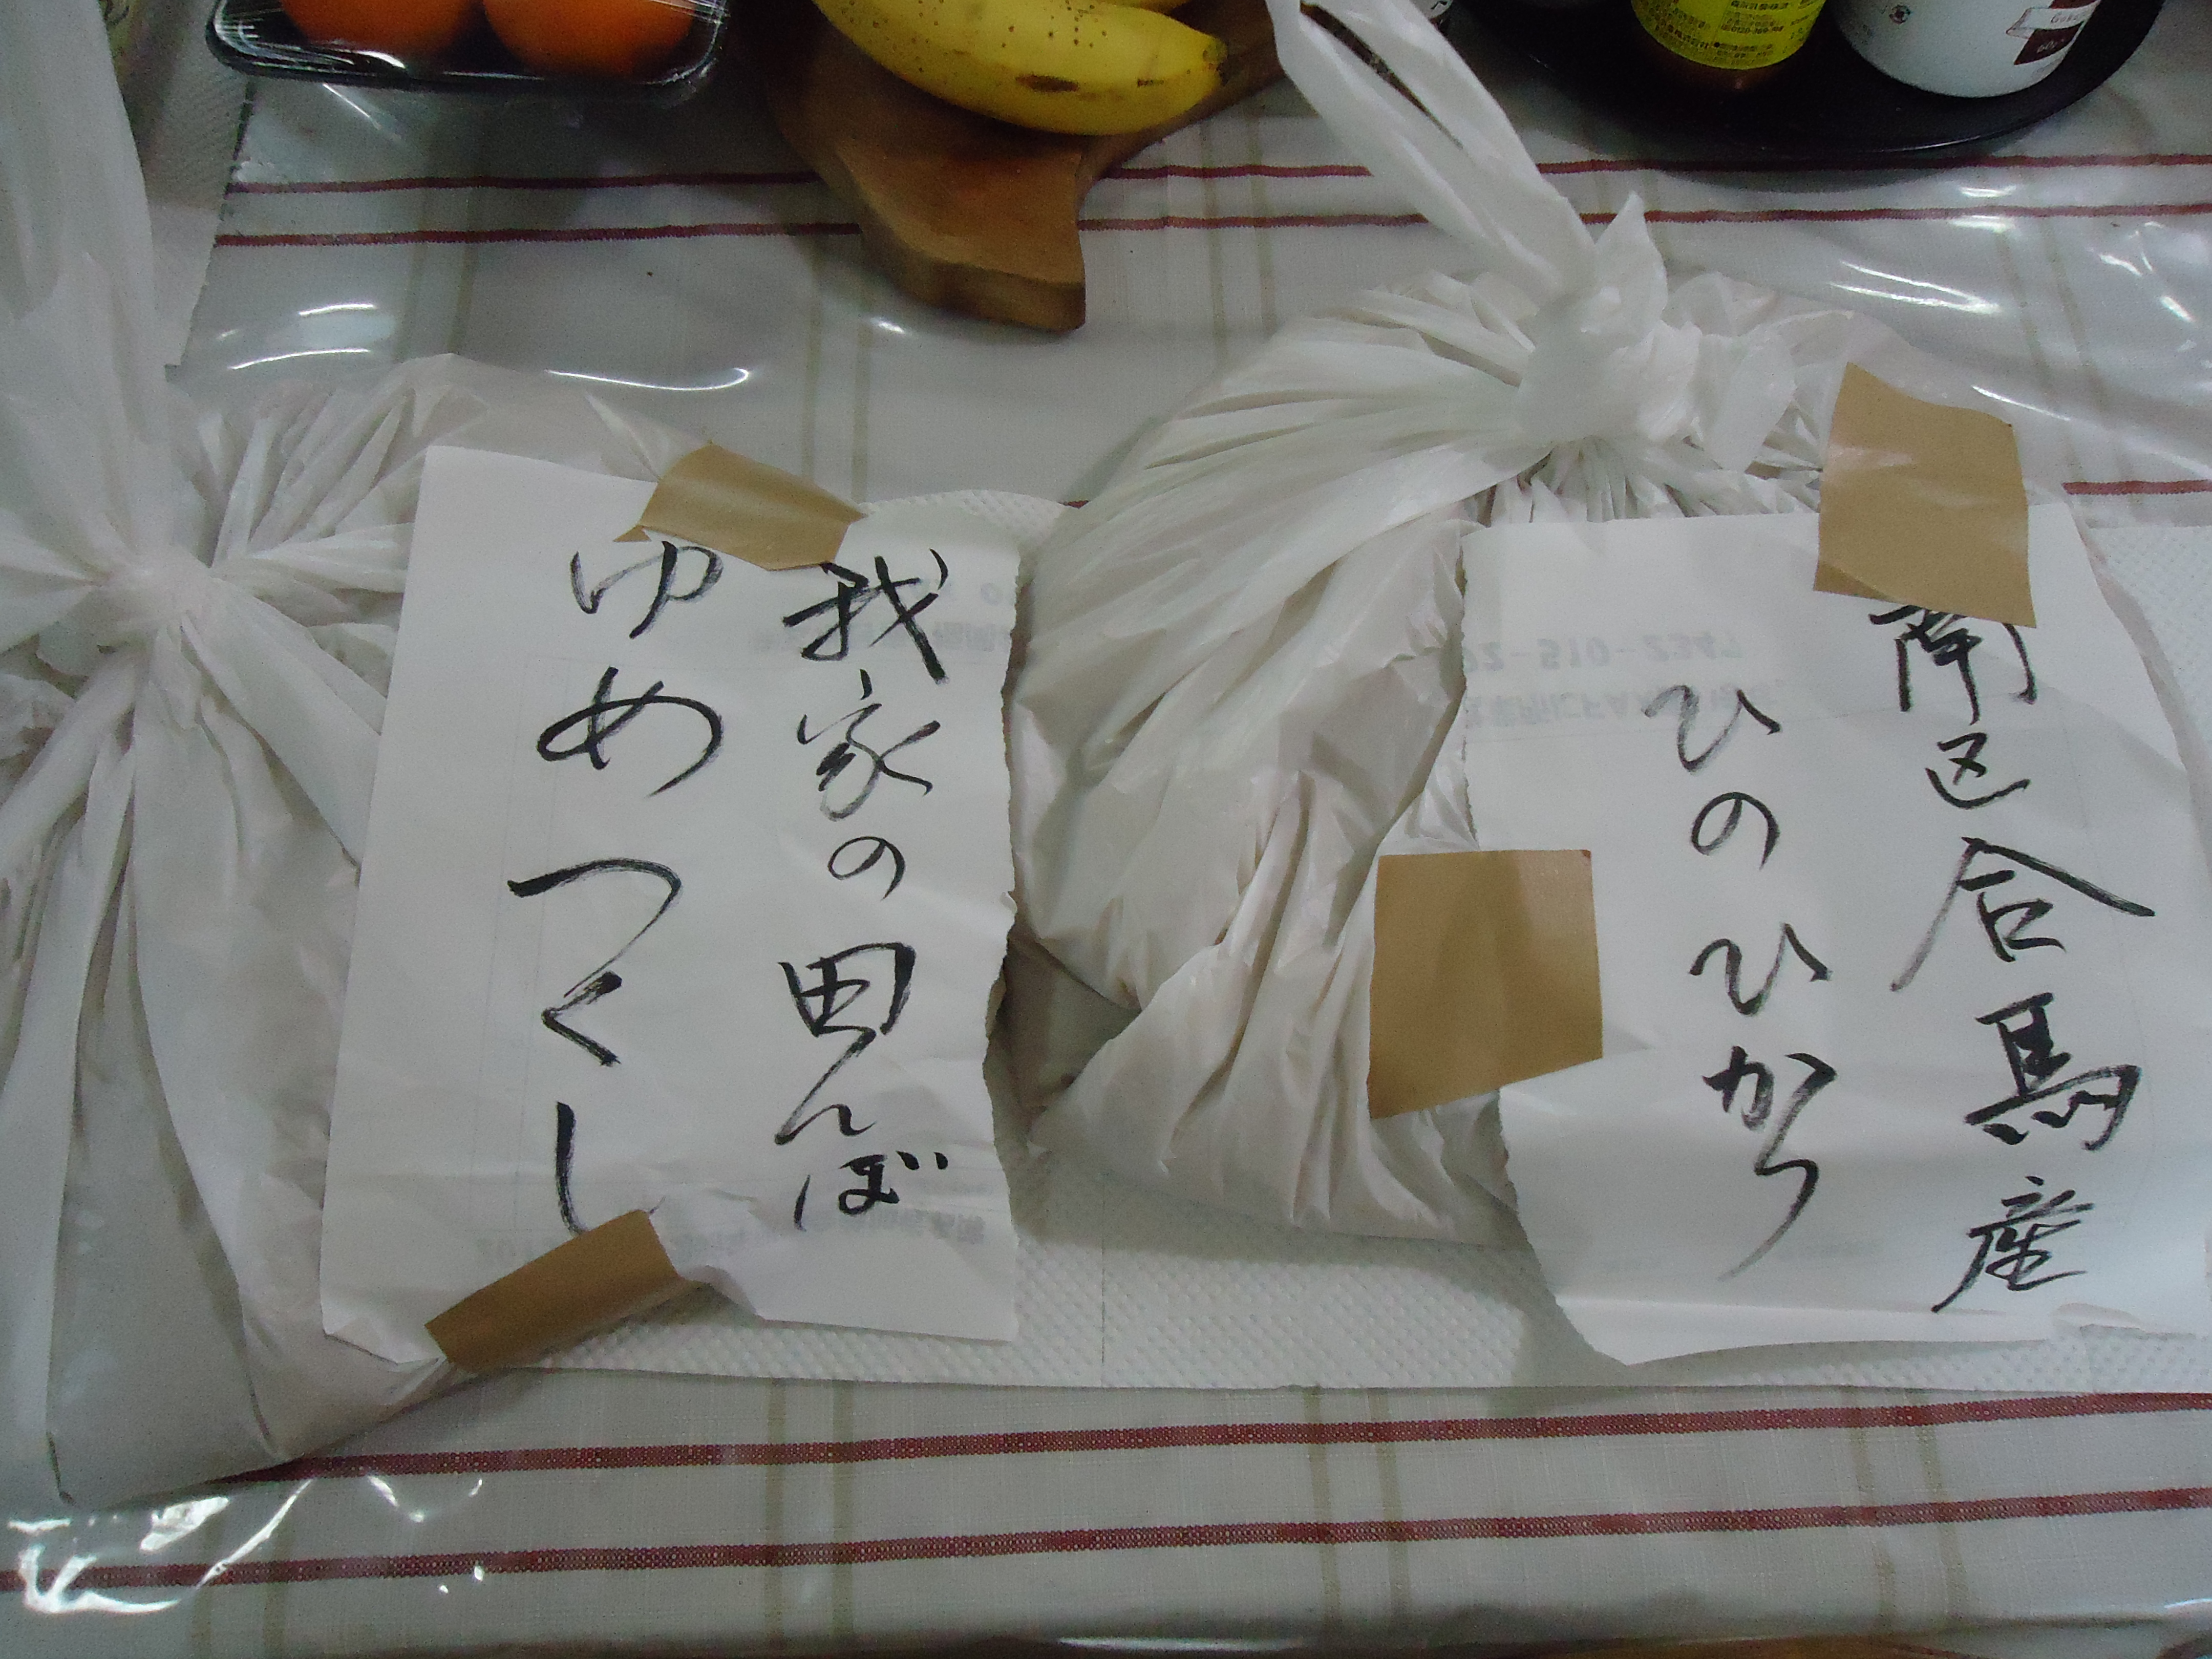 南区合馬産
ひのひかり
我家の田んぼ
ゆめつくし